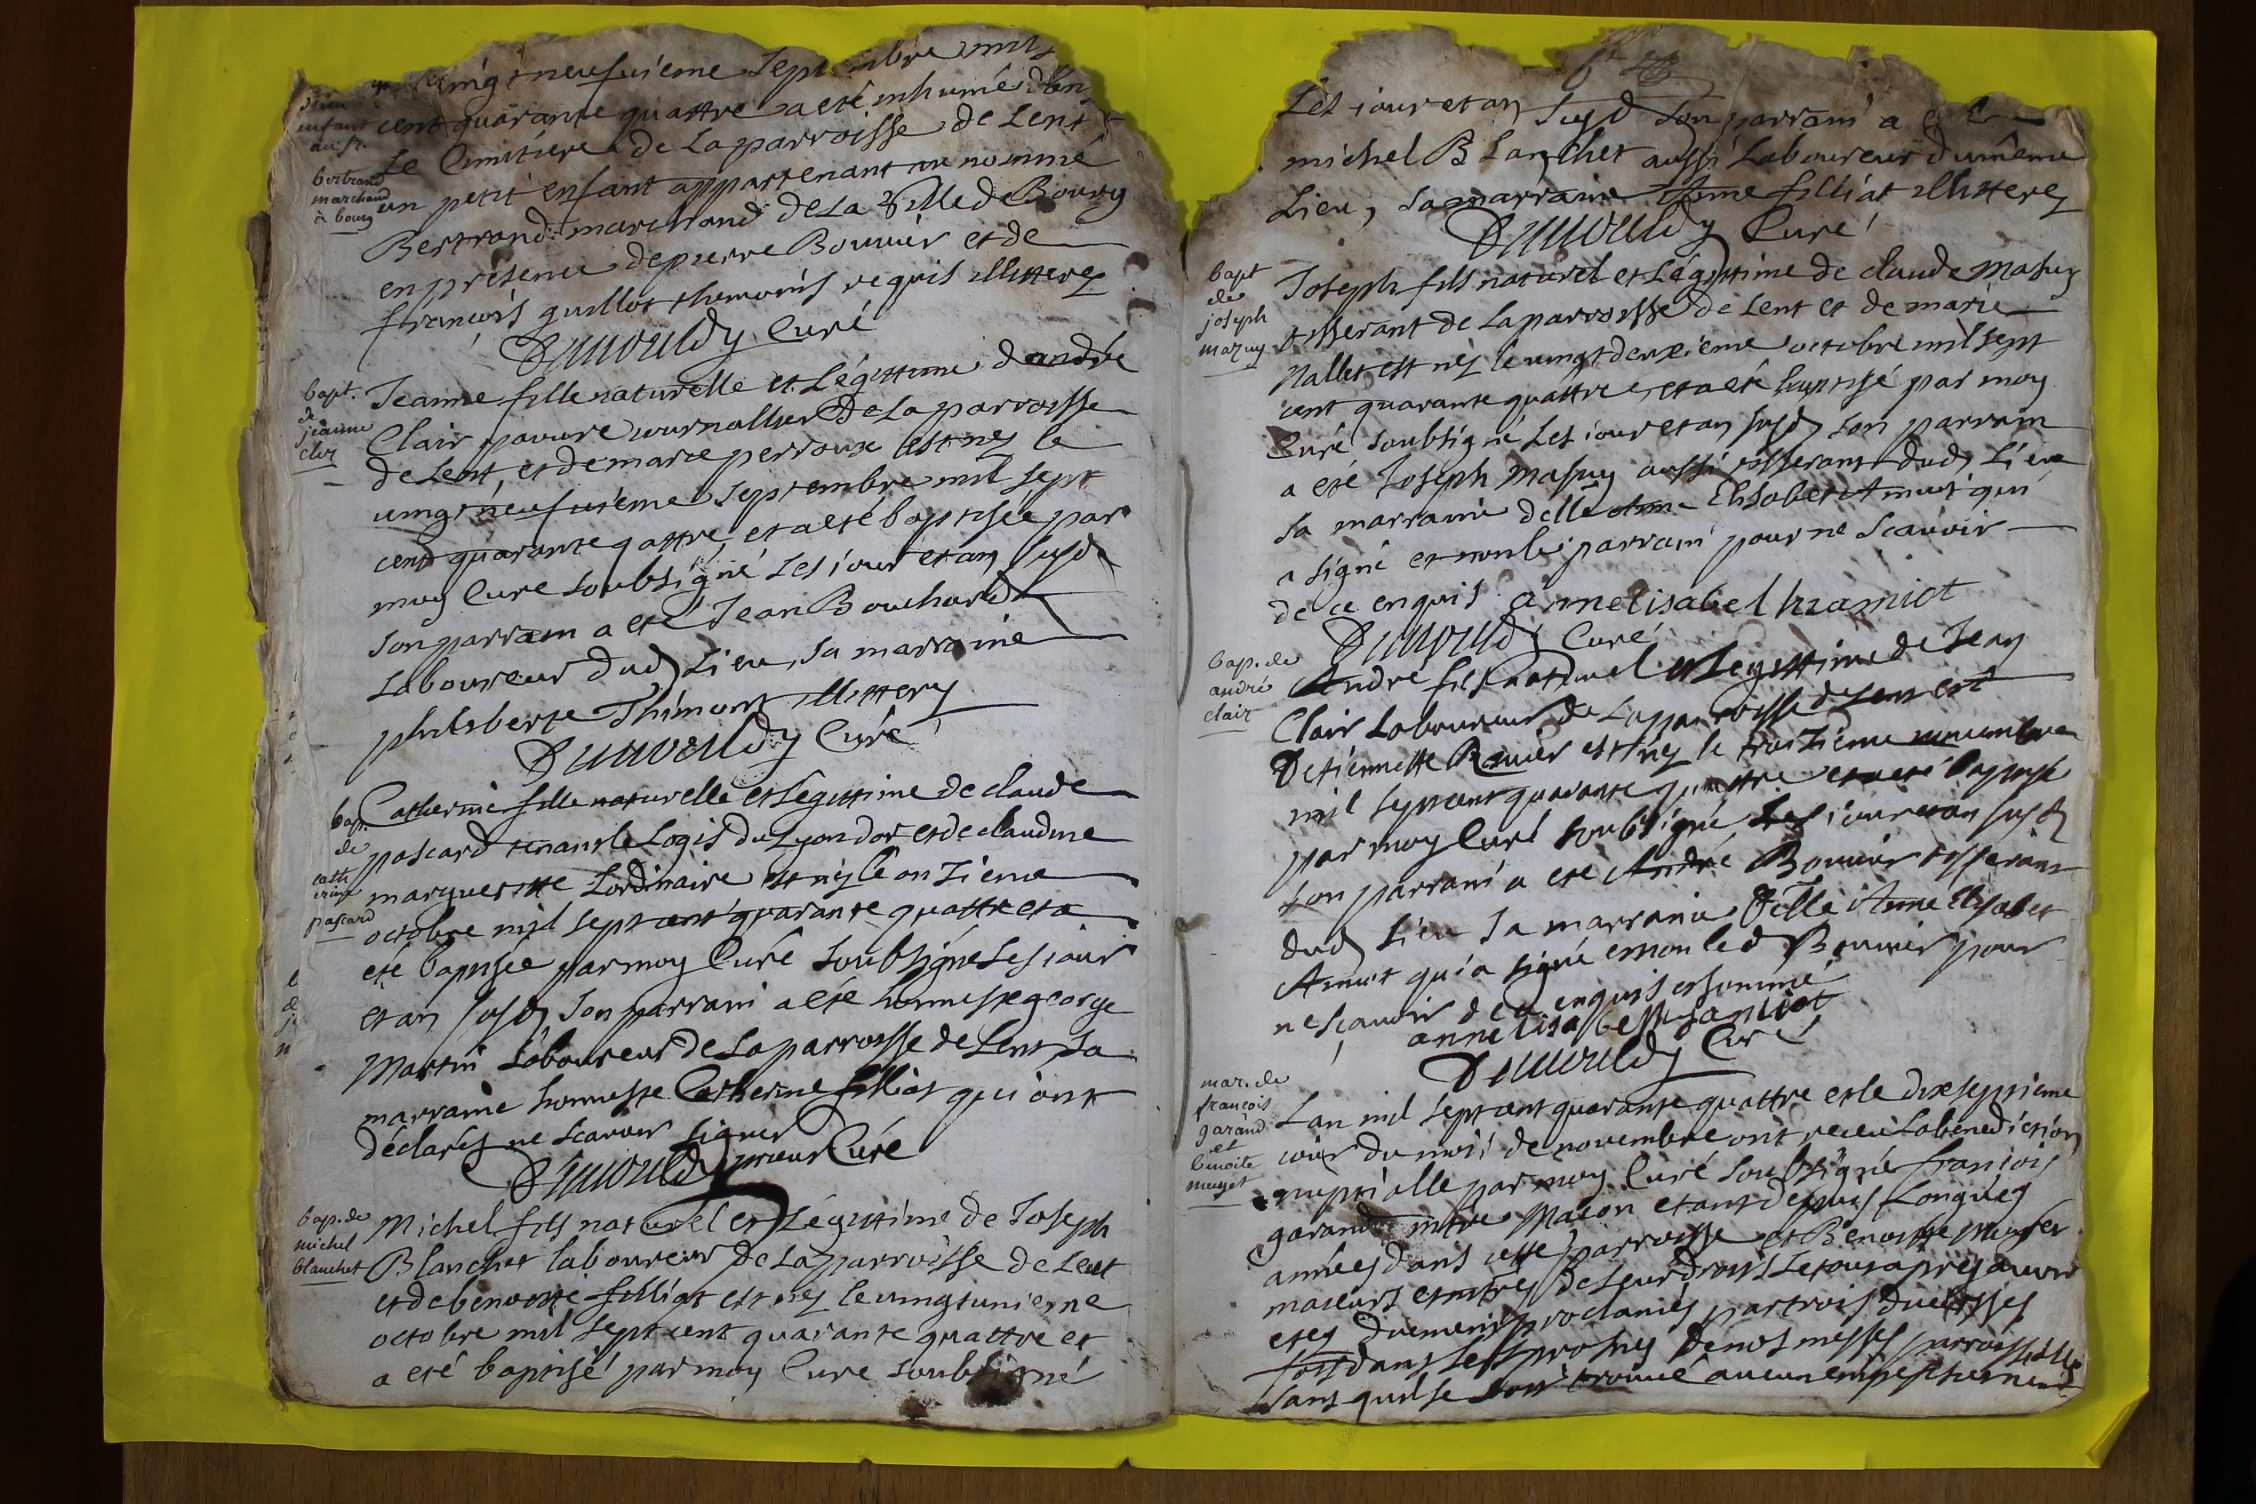 vingt neufvieme septembre mil
enfant
au sr.
bertrand
marchand
à bourg
cent quarante quattre a eté inhumé dans
Le Cimitiere de La parroisse de Lent
un petit enfant appartenant au nommé
Bertrand marchand de La Ville de Bourg
en présence de pierre Bouvier et de
françois guillot themoins requis illitterez
Curé
bapt.
de
jeanne
cler
Jeanne fille naturelle et Légittime d'andré
Clair pauvre journallier De La parroisse
de Lent, et de marie perroux est néz le
vingt neufvieme septembre mil sept
cent quarante qattre, et a eté baptisée par
moy Curé soubsigné Les jour et an susd.
son parrain a eté Jean Bouchard
Laboureur dud. Lieu, sa marraine
philiberte Thimont illittery
Curé
bap.
de
cath
erine
pascard
Catherine fille naturelle et Légittime de claude
pascard tenant le Logis du Lyon dor et de claudine
margueritte Lordinaire est néz le onzieme
octobre mil sept cent quarante quattre et a
eté baptisée par moy Curé soubsigné Les jour
et an susd. son parrain a eté honneste george
Martin Laboureur de La parroisse de Lent, sa
marraine honneste Catherine filliat qui ont
déclarés ne scavoir signer
prieur Curé
bap. de
michel
blanchet
Michel fils naturel et Légittime de Joseph
Blanchet laboureur de La parroisse de Lent
et de benoitte filliat est néz le vingtunieme
octobre mil sept cent quarante quattre et
a eté baptisé par moy Curé soubsigné
Les jour et an susd. son parrain a eté
michel Blanchet aussi Laboureur du même
Lieu, sa marraine Anne filliat illitterez
Curé
bapt
de
joseph
mazuy
Joseph fils naturel et Légittime de claude Masuy
tisserant de La parroisse de Lent et de marie
Nallet est néz le vingt deuxieme octobre mil sept
cent quarante quattre, et a eté baptisé par moy
Curé soubsigné Les jour et an susd. son parrain
a eté Joseph Masuy aussi tisserant dud. Lieu
sa marraine delle Anne Elisabet Amiot qui
a signé et non le parrain pour ne scavoir
de ce enquis anne elisabel hamiot
Curé
bap. de
andré
clair
André fils naturel et Legittime de Jean
Clair Laboureur de La parroisse de Lent et
D'etiennette Bouvier est néz le troizieme novembre
mil sept cent quarante quattre et a eté baptisé
par moy Curé soubsigné Les jour et an susd.
son parrain a eté André Bouvier tisserant
dud. Lieu sa marraine Delle Anne Elisabet
Amiot qui a signé et non led. Bouvier pour
ne scavoir de ce enquis et sommé
anne lisabelle hamiot
Curé
mar. de
françois
garand
et
benoite
muget
Lan mil sept cent quarante quattre et le dix septieme
jour du mois de novembre ont receu La benediction
nuptialle par moy Curé soubsigné françois
garand mtre Macon etant depuis Longues
années dans cette parroisse et Benoitte Muget
majeurs et mtres De Leur droits Le tout apres avoir
etes duement proclamés par trois diversses
fois dans Les prosnes De nos messes parroissialles
sans quil se soit trouvé aucun empeschement